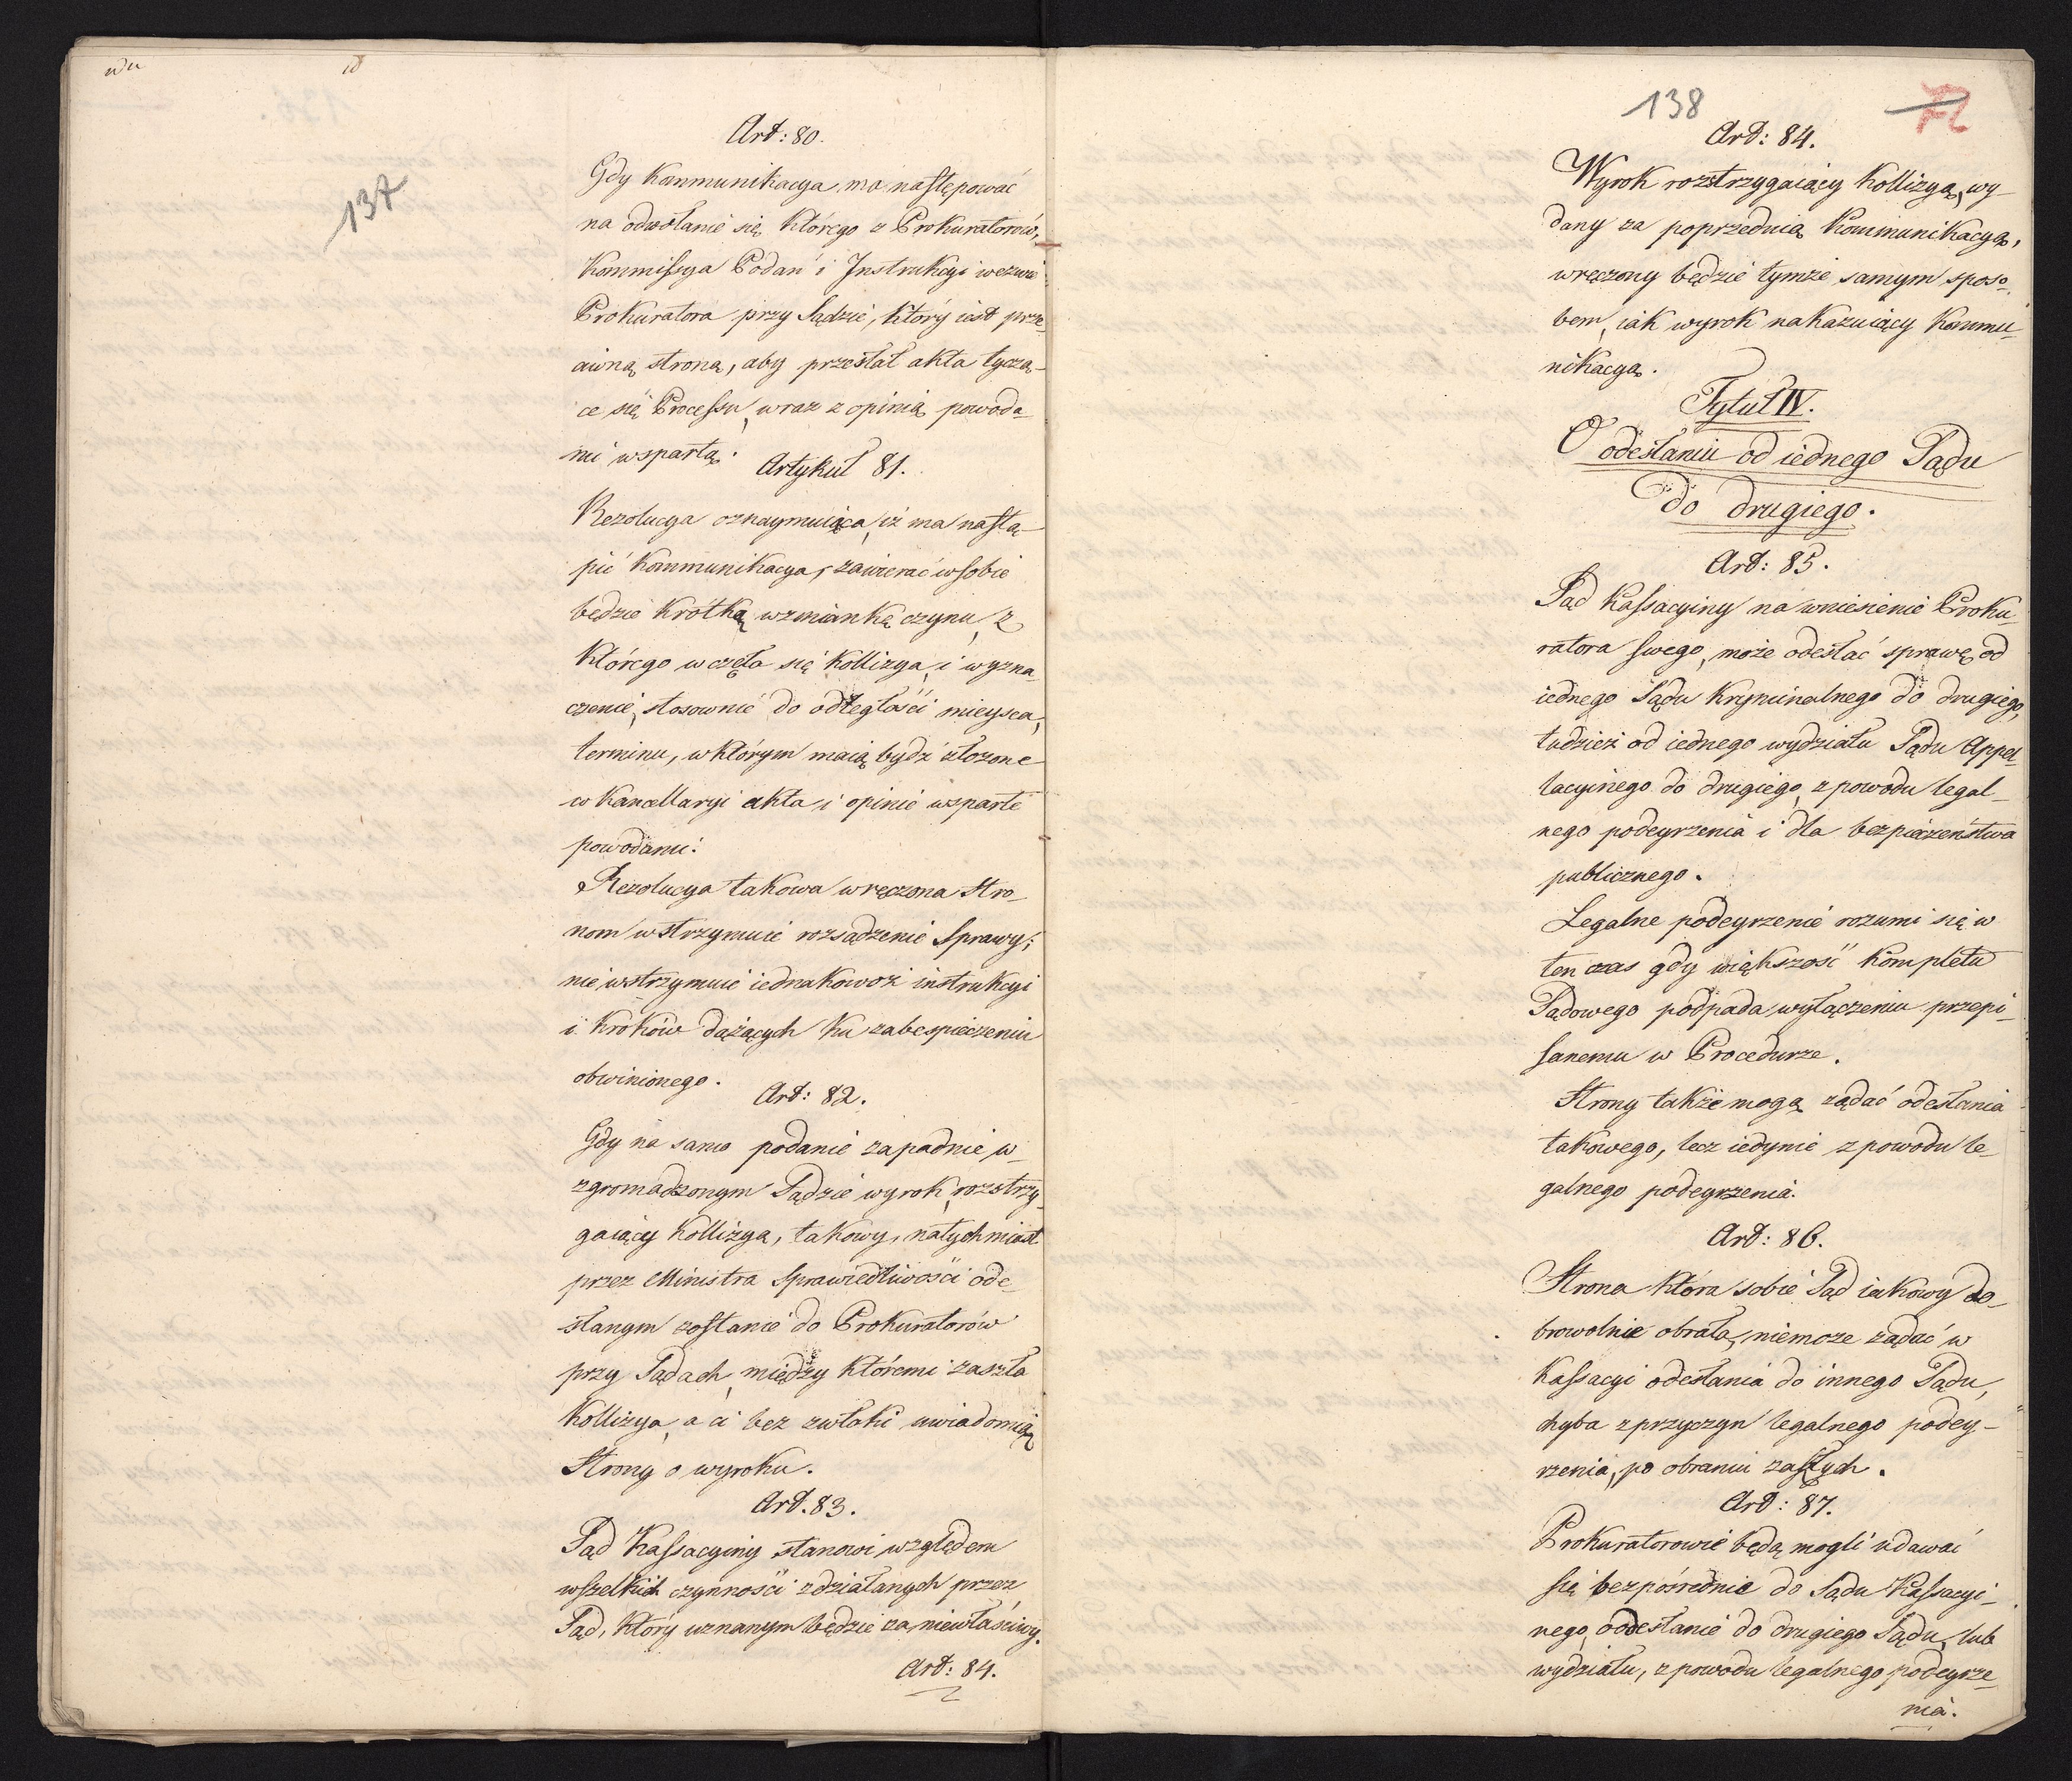 137
Art: 80.
Gdy Kommunikacya ma następować
na odwołanie się którego z Prokuratorów,
Kommissya Podań i Instrukcyi wezwie
Prokuratora przy Sądzie, który iest prze-
ciwną stroną, aby przesłał akta tyczą-
ce się Processu, wraz z opinią powoda-
mi wspartą.
Artykuł 81.
Rezolucya oznaymuiąca, iż ma nastą-
pić Kommunikacya, zawierać w sobie
będzie krótką wzmiankę czynu, z
którego wczęła się Kollizya, i wyzna-
czenie, stosownie do odległości mieysca,
terminu, w którym maią bydź złożone
w Kancellaryi akta i opinie wsparte
powodami.
Rezolucya takowa wręczona Stro-
nom wstrzymuie rozsądzenie Sprawy;
nie wstrzymuie iednakowoż instrukcyi
i kroków dążących ku zabespieczeniu
obwinionego.
Art: 82.
Gdy na samo podanie zapadnie w
zgromadzonym Sądzie wyrok, rozstrzy-
gaiący Kollizyą, takowy, natychmiast
przez Ministra Sprawiedliwości ode-
słanym zostanie do Prokuratorów
przy Sądach, między któremi zaszła
Kollizya, a ci bez zwłoki uwiadomią
Strony o wyroku.
Art. 83.
Sąd Kassacyiny stanowi względem
wszelkich czynności zdziałanych przez
Sąd, który uznanym będzie za niewłaściwy.
Art: 84.
138
72
Art: 84.
Wyrok rozstrzygaiący Kollizyą, wy-
dany za poprzednią Kommunikacyą,
wręczony będzie tymże samym sposo-
bem, iak wyrok nakazuiący Kommu-
nikacyą.
Tytuł IV.
O odesłaniu od iednego Sądu
do drugiego.
Art: 85.
Sąd Kassacyiny na wniesienie Proku-
ratora swego, może odesłać sprawę od
iednego Sądu Kryminalnego do drugiego,
tudzież od iednego wydziału Sądu Appel-
lacyinego do drugiego, z powodu legal-
nego podeyrzenia i dla bezpieczeństwa
publicznego.
Legalne podeyrzenie rozumi się w
ten czas gdy większość kompletu
Sądowego podpada wyłączeniu przepi-
sanemu w Procedurze.
Strony także mogą żądać odesłania
takowego, lecz iedynie z powodu le-
galnego podeyrzenia.
Art: 86.
Strona która sobie Sąd iakowy do-
browolnie obrała, niemoże żądać w
Kassacyi odesłania do innego Sądu,
chyba z przyczyn legalnego podey-
rzenia, po obraniu zaszłych.
Art: 87.
Prokuratorowie będą mogli udawać
się bezpośrednio do Sądu Kassacyi-
nego, o odesłanie do drugiego Sądu, lub
wydziału, z powodu legalnego podeyrze-
nia.